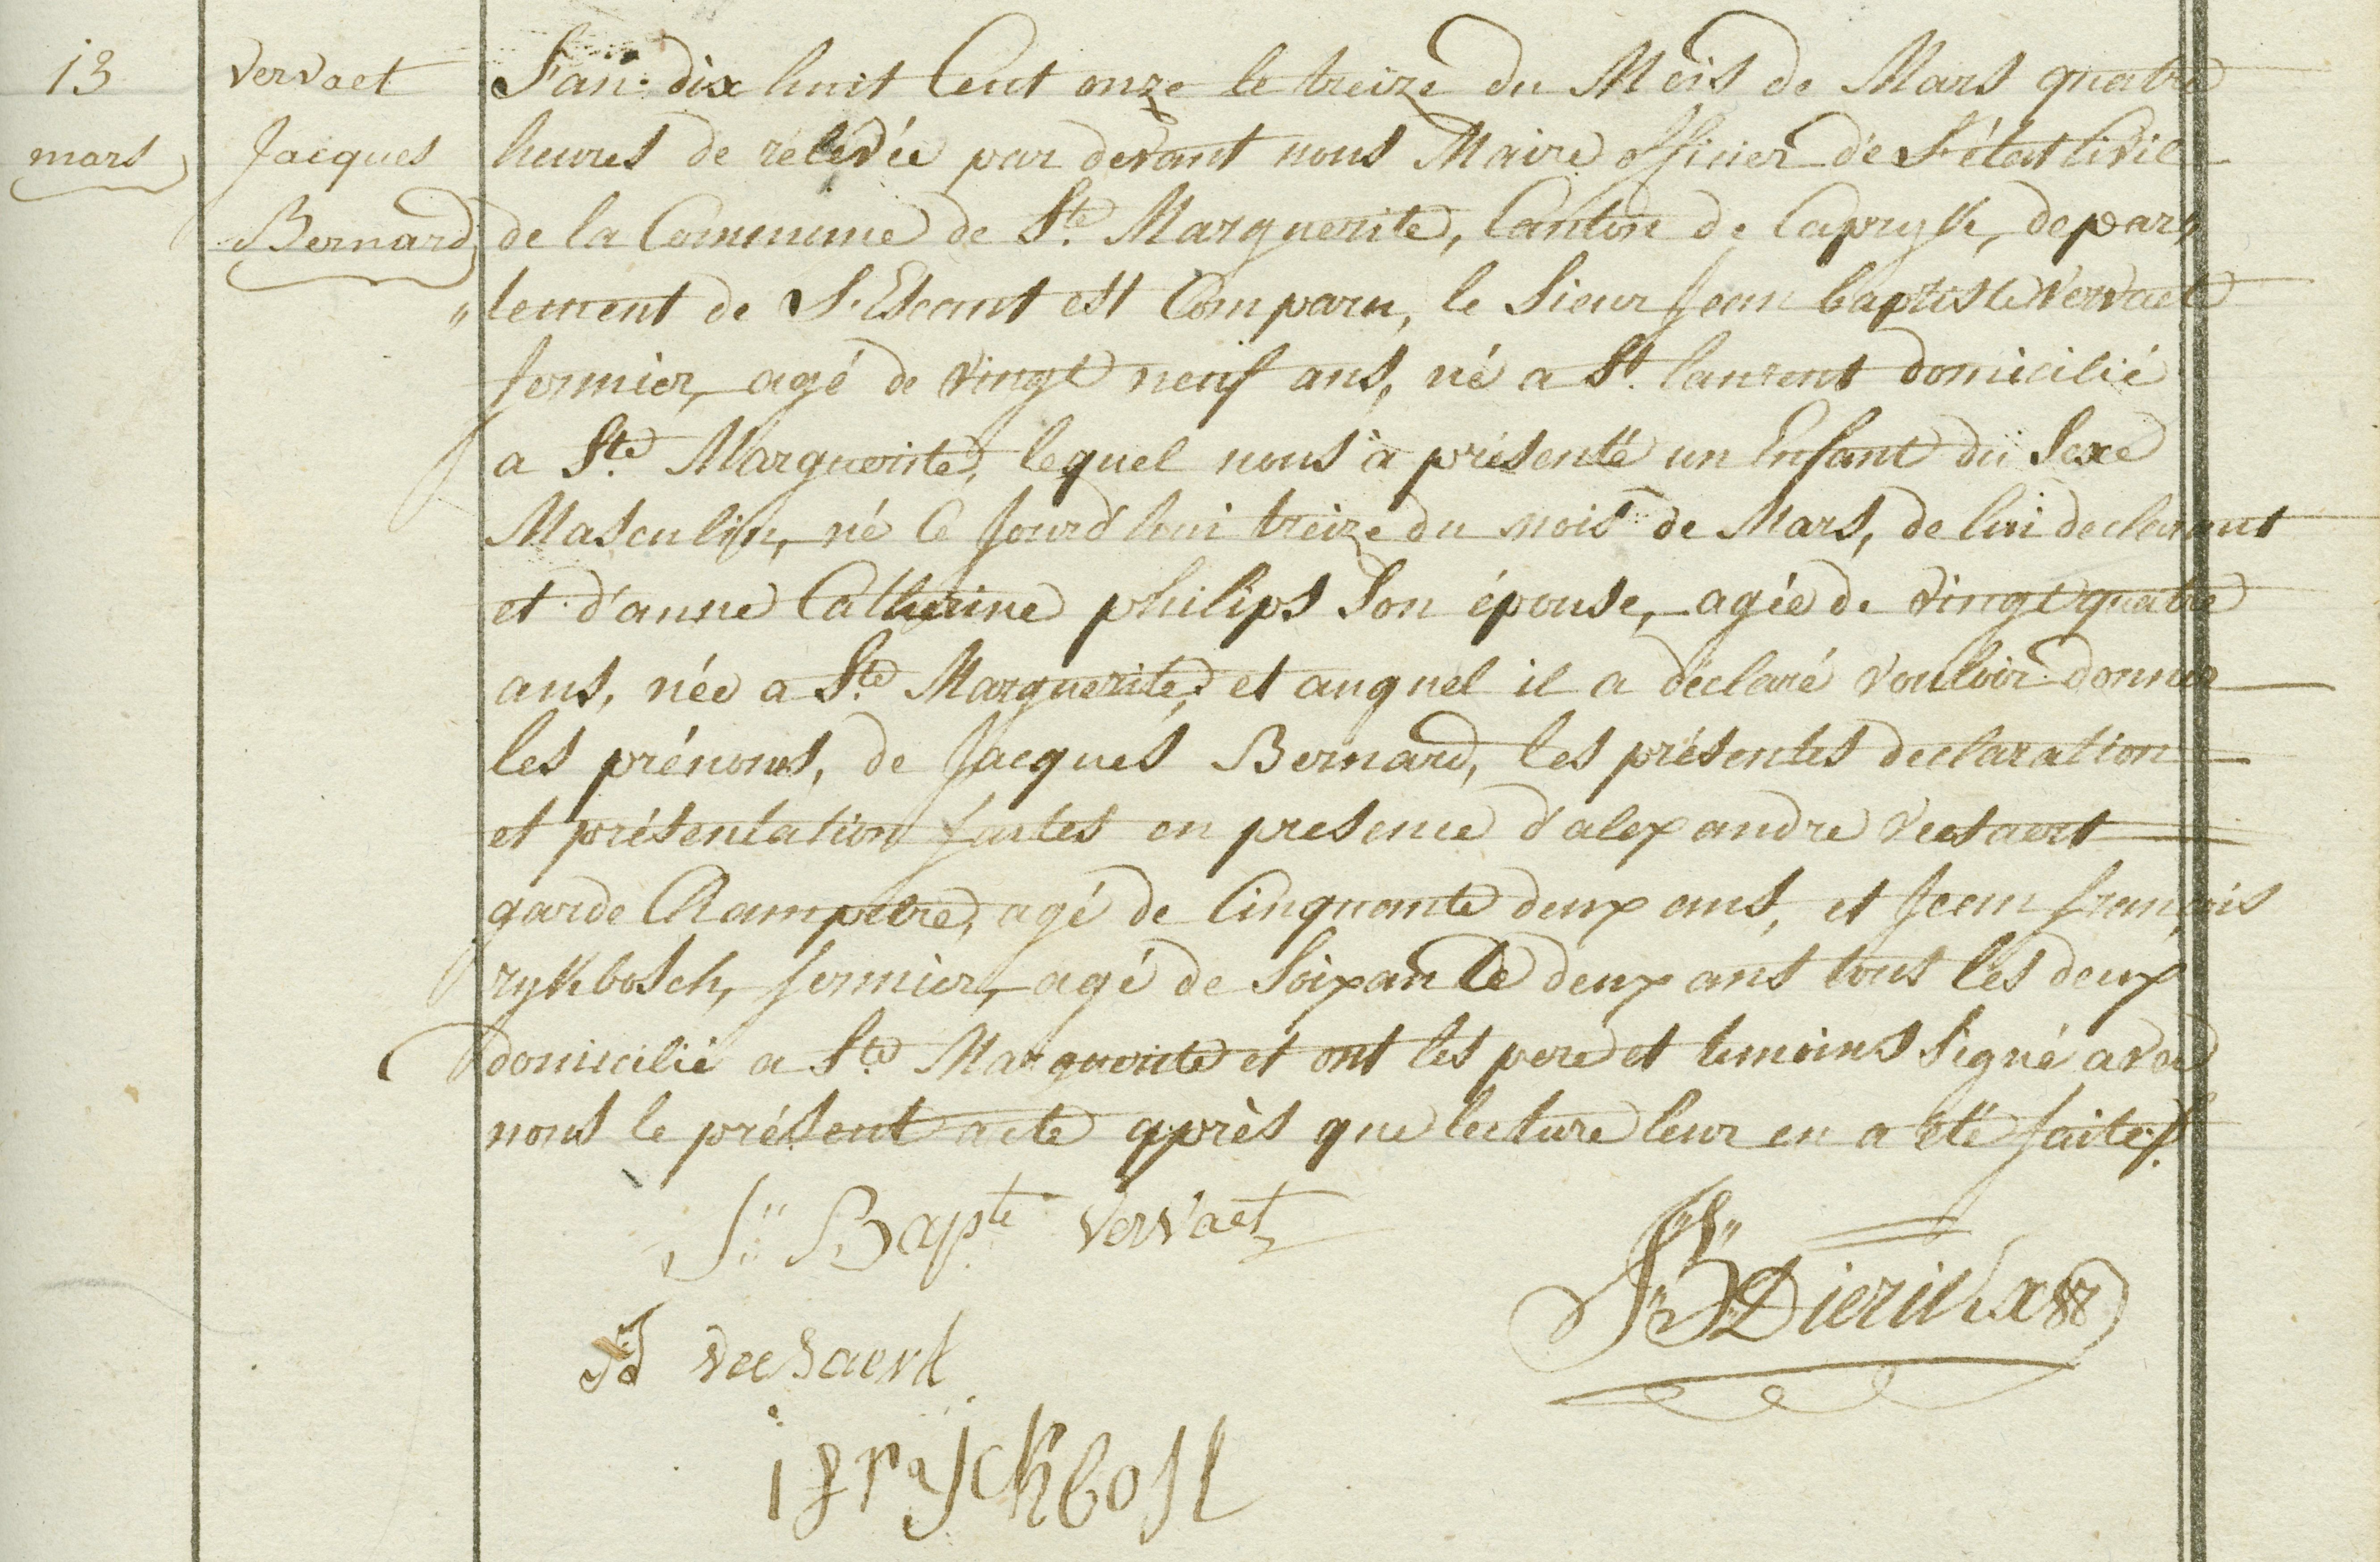 13
mars
Vervaet
Jacques
Bernard
L'an dix huit Cent onze le treize du Mois de Mars quatre
heures de rélevée par devant nous Maire officier de L'état Civil
de la Commune de Ste. Marguerite, Canton de Capryk, depar„
„tement de L'Escaut est Comparu, le Sieur Jean baptiste Vervaet
fermier, agé de vingt neuf ans, né a St. laurent domicilié
a Ste. Marguerite, lequel nous à présenté un Enfant du Sexe
Masculin, né Ce Jourd'hui treize du mois de Mars, de lui declarant
et d'anne Catherine philips Son épouse, agée de vingt quatre
ans, née a Ste. Marguerite, et auquel il a déclaré vouloir donner
les prénoms, de Jacques Bernard, les présentes declaration
et présentation faites en presence d'alexandre Veesaert
garde Champetre, agé de Cinquante deux ans, et Jean françois
rykbosch, fermier, agé de Soixante deux ans tous les deux
domicilié a Ste. Marguerite et ont les pere et temoins Signé avec
nous le présent acte après que lecture leur en a été faite.
Jn Bapte Vervaet
Veesaert
J B Dierickx
j f rijckbosl